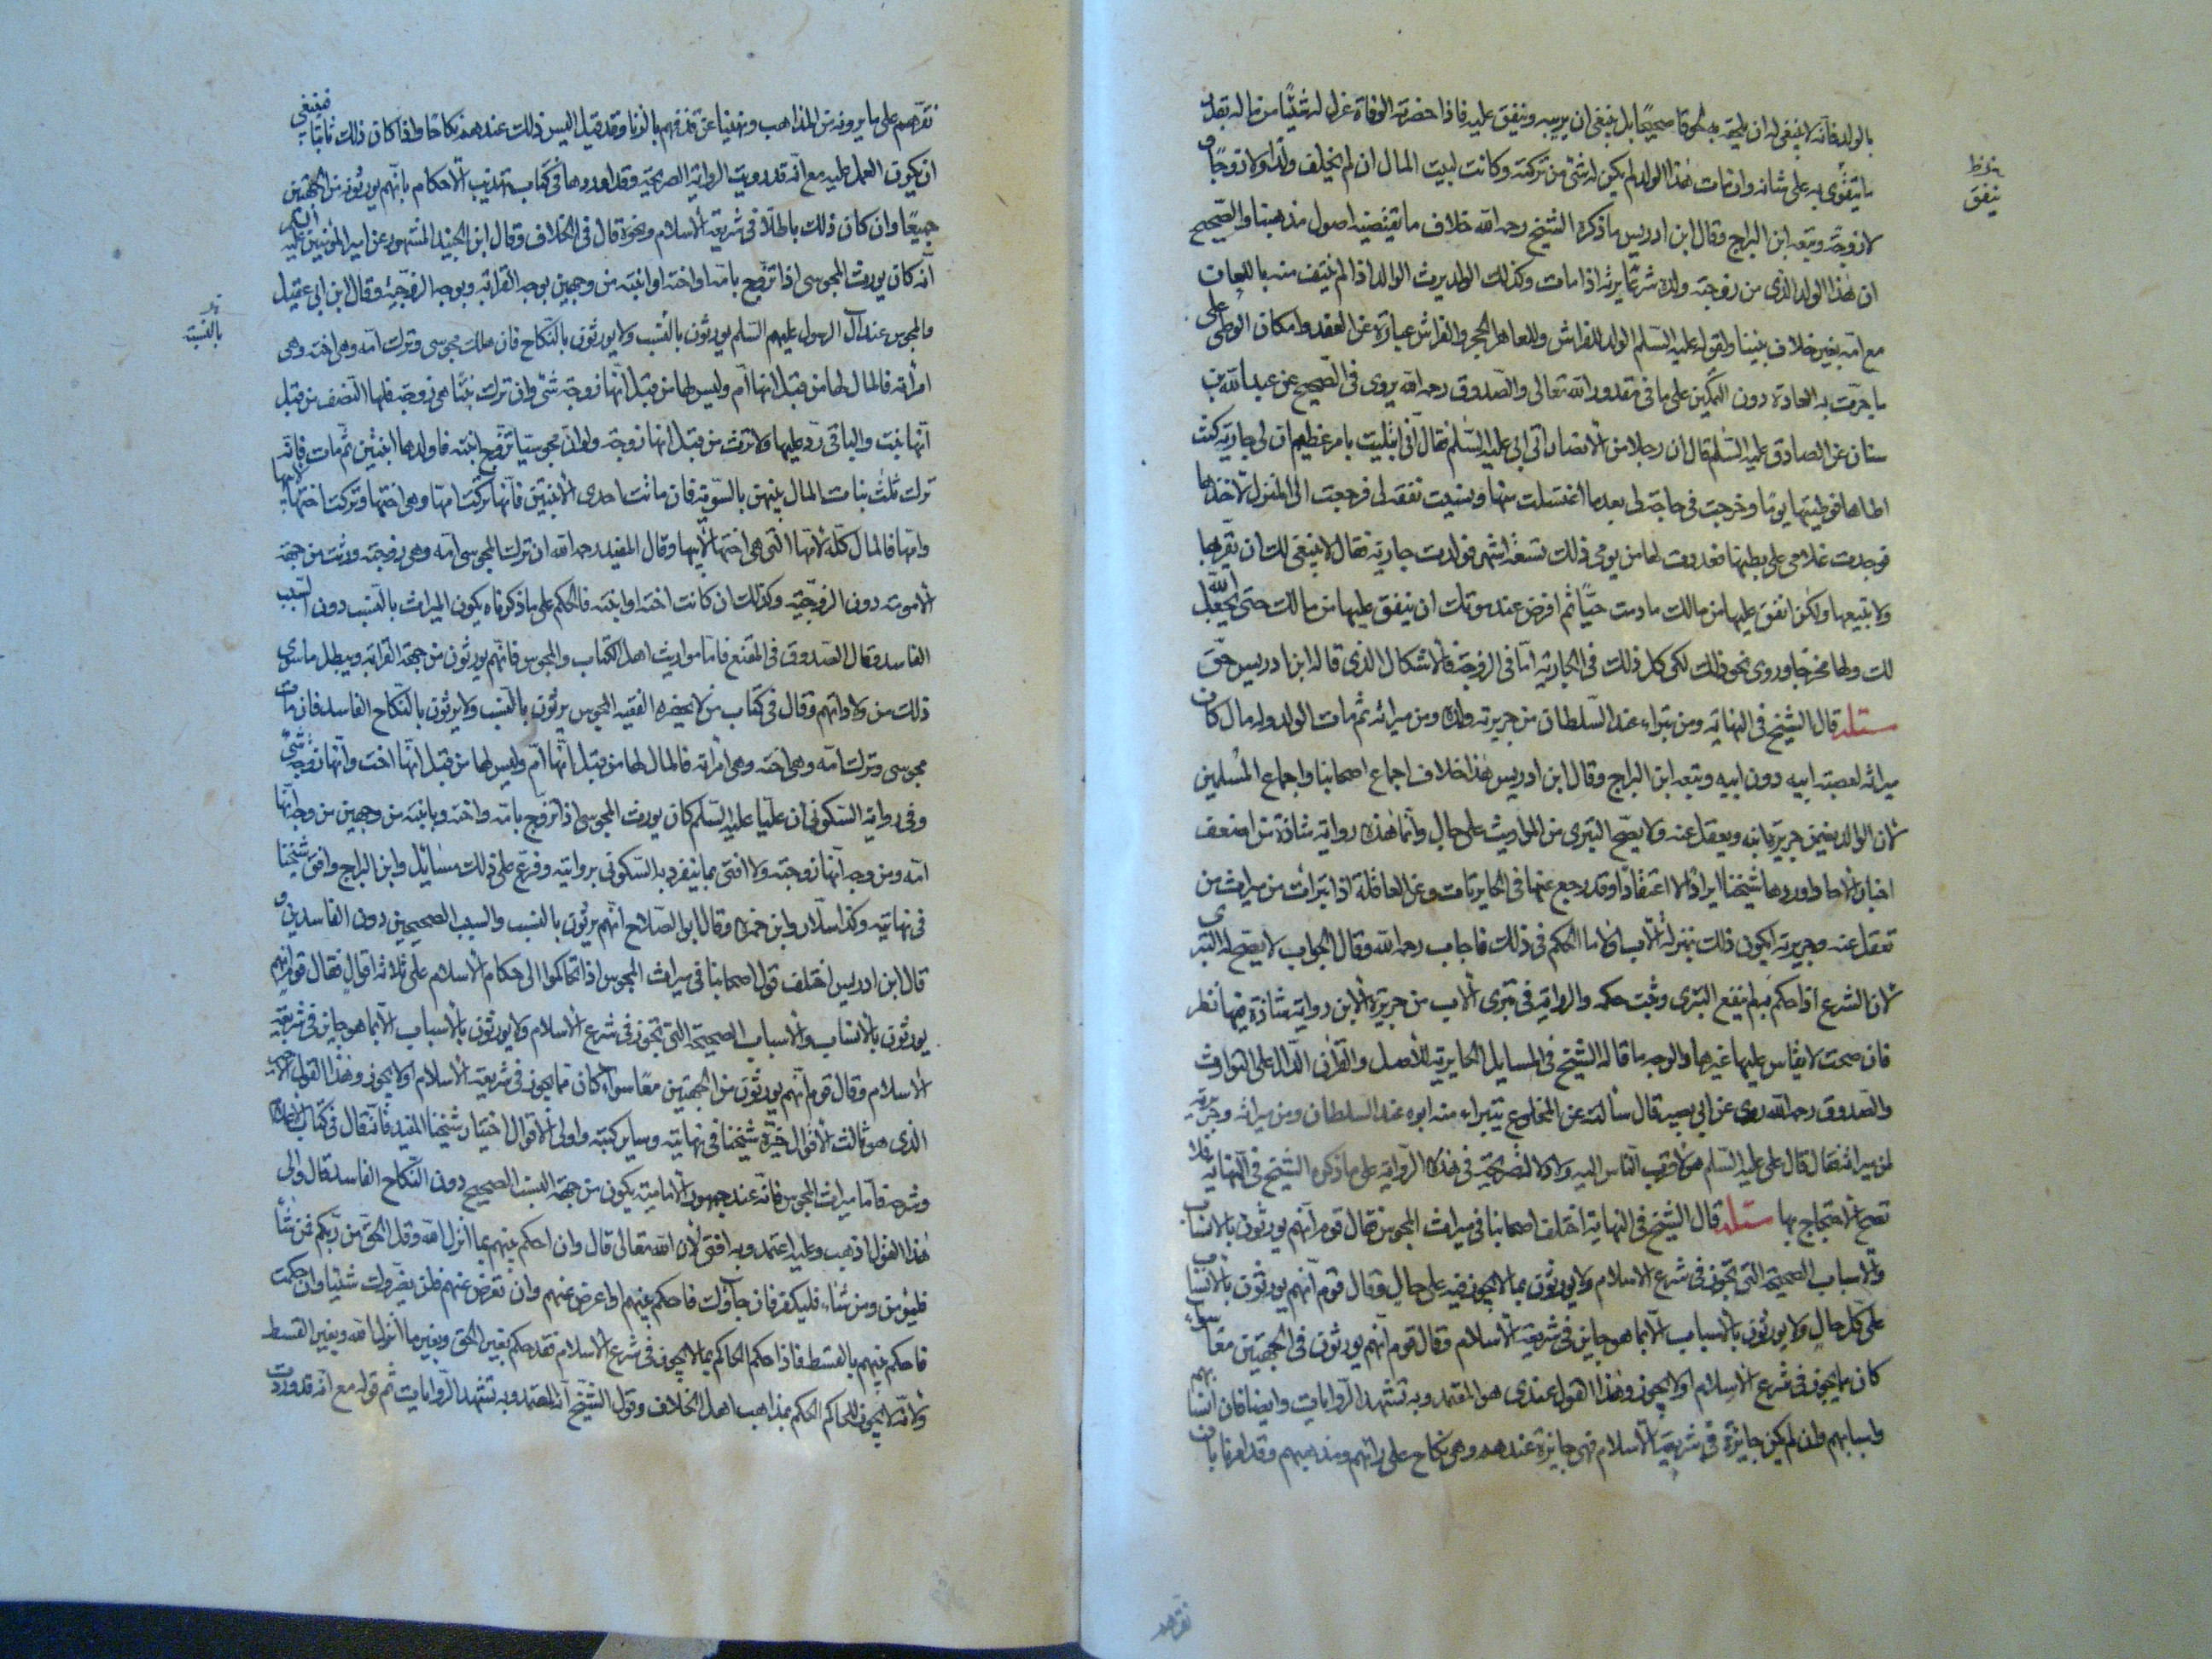 بالولد فانه لا ينبغي له ان يلحقه به لحوقا صحيحًا بل ينبغي ان يربيه وينفق عليه فاذا حضرته الوفاة عزل له شيئًا من ماله بقدر
ما يتقوى به على شانه وان مات هذا الولد لم يكن له شئ من تركته وكانت لبيت المال ان لم يخلف ولدًا ولا زوجًا و
لا زوجة وتبعه ابن البراج وقال ابن ادريس ما ذكره الشيخ رحمه الله خلاف ما يقتضيه اصول مذهبنا والصحيح
ان هذا الولد الذي من زوجته ولده شرعًا يرثه اذا مات وكذلك الولد يرث الوالد اذا لم ينتف منه باللعان
مع امه بغير خلاف بيننا ولقوله عليه السلم الولد للفراش وللعاهر الحجر والفراش عبارة عن العقد وامكان الوطي على
ما جرت به العادة دون التمكين على ما في مقدور الله تعالى والصدوق رحمه الله روى في الصحيح عن عبد الله بن
سنان عن الصادق عليه السلم قال ان رجلا من الانصار اتى ابي عليه السلم فقال اني ابتليت بامر عظيم ان لي جارية كنت
اطاها فوطيتها يومًا وخرجت في حاجة لي بعد ما اغتسلت منها ونسيت نفقة لي فرجعت الى المنزل لاخذها
فوجدت غلامي على بطنها فعددت لها من يومي ذلك تسعة اشهر فولدت جارية فقال لا ينبغي لك ان تقربها
ولا تبيعها ولكن انفق عليها من مالك ما دمت حيًا ثم اوص عند موتك ان ينفق عليها من مالك حتى يجعل الله
لك ولها مخرجا وروي نحو ذلك لكن كل ذلك في الجارية اما في الزوجة فالاشكال الذي قاله ابن ادريس حق
مسئله قال الشيخ في النهاية ومن تبراء عند السلطان من جريرة ولده ومن ميراثه ثم مات الولد وله مال كان
ميراثه لعصبة ابيه دون ابيه وتبعه ابن البراج وقال ابن ادريس هذا خلاف اجماع اصحابنا واجماع المسلمين
لان الوالد يضمن جريرة ابنه ويعقل عنه ولا يصح التبري من المواريث على حال وانما هذه رواية شاذة من اضعف
اخبار الاحاد اوردها شيخنا ايرادًا لا اعتقادًا وقد رجع عنها في الحايريات وعن العاقلة اذا تبرأت من ميراث من
تعقل عنه وجريرته ايكون ذلك بمنزلة الاب او ما الحكم في ذلك فاجاب رحمه الله وقال الجواب لا يصح له التبري
لان الشرع اذا حكم به لم ينفع التبري وثبت حكمه والرواية في تبري الاب من جريرة الابن رواية شاذة فيها نظر
فان صحت لا يقاس عليها غيرها والوجه ما قاله الشيخ في المسايل الحايرية للاصل والقرآن الدال على التوارث
والصدوق رحمه الله روى عن ابي بصير قال سألته عن المخلوع يتبراء منه ابوه عند السلطان ومن ميراثه وجريرته
لمن ميراثه فقال قال علي عليه السلم هو لاقرب الناس اليه ولا دلالة صريحة في هذه الرواية على ما ذكره الشيخ في النهاية فلا
تصح الاحتجاج بها مسئله قال الشيخ في النهاية اختلف اصحابنا في ميراث المجوس فقال قوم انهم يورثون بالانساب
والاسباب الصحيحة التي تجوز في شرع الاسلام ولا يورثون بما لا يجوز فيه على حال وقال قوم انهم يورثون بالانساب
على كل حال ولا يورثون بالاسباب الا بما هو جايز في شريعة الاسلام وقال قوم انهم يورثون في الجهتين معًا سواء
كان مما يجوز في شرع الاسلام او لا يجوز وهذا القول عندي هو المعتمد وبه تشهد الروايات وايضا فان انسابهم
واسبابهم وان لم يكن جايزة في شريعة الاسلام فهي جايزة عندهم وهي نكاح على رايهم ومذهبهم وقد امرنا بان
ينفق
نقرهم
نقرهم على ما يرونه من المذاهب ونهينا عن قذفهم بالزنا وقد قيل اليس ذلك عندهم نكاحا واذا كان ذلك ثابتا فينبغي
ان يكون العمل عليه مع انه قد رويت الرواية الصريحة وقد اوردوها في كتاب تهذيب الاحكام بانهم يورثون من الجهتين
جميعًا وان كان ذلك باطلًا في شريعة الاسلام ونحوه قال في الخلاف وقال ابن الجنيد المشهور عن امير المؤمنين عليه السلم
انه كان يورث المجوسي اذا تزوج بامه او اخته او ابنته من وجهين بوجه القرابة وبوجه الزوجية وقال ابن ابي عقيل
والمجوس عند آل الرسول عليهم السلم يورثون بالنسب ولا يورثون بالنكاح فان هلك مجوسي وترك امه وهي اخته وهي
امرأته فالمال لها من قبل انها ام وليس لها من قبل انها زوجة شئ وان ترك بنتًا هي زوجة فلها النصف من قبل
انها بنت والباقي رد عليها ولا ترث من قبل انها زوجة ولو ان مجوسيا تزوج ابنته فاولدها ابنتين ثم مات فانه
ترك ثلث بنات المال بينهن بالسوية فان ماتت احدى الابنتين فانها تركت امها وهي اختها وتركت اختها لابيها
وامها فالمال كله لامها التي هي اختها لابيها وقال المفيد رحمه الله ان ترك المجوسي امه وهي زوجته ورثت من جهة
الامومة دون الزوجية وكذلك ان كانت اخته او ابنته فالحكم على ما ذكرناه يكون الميراث بالنسب دون السبب
الفاسد وقال الصدوق في المقنع فاما مواريث اهل الكتاب والمجوس فانهم يورثون من جهة القرابة ويبطل ما سوى
ذلك من ولاداتهم وقال في كتاب من لا يحضره الفقيه المجوس يرثون بالنسب ولا يرثون بالنكاح الفاسد فان مات
مجوسي وترك امه وهي اخته وهي امرأته فالمال لها من قبل انها ام وليس لها من قبل انها اخت وانها زوجة شئ
وفي رواية السكوني ان عليا عليه السلم كان يورث المجوسي اذا تزوج بامه واخته وبابنته من وجهين من وجه انها
امه ومن وجه انها زوجته ولا افتى بما ينفرد به السكوني بروايته وفرع على ذلك مسائل وابن البراج وافق شيخنا
في نهايته وكذا سلار وابن حمزة وقال ابو الصلاح انهم يرثون بالنسب والسبب الصحيحين دون الفاسدين و
قال ابن ادريس اختلف قول اصحابنا في ميراث المجوس اذا تحاكموا الى حكام الاسلام على ثلاثة اقوال فقال قوم انهم
يورثون بالانساب والاسباب الصحيحة التي تجوز في شرع الاسلام ولا يورثون بالاسباب الا بما هو جايز في شريعة
الاسلام وقال قوم انهم يورثون من الجهتين معًا سواء كان مما يجوز في شريعة الاسلام او لا يجوز وهذا القول الاخير
الذي هو ثالث الاقوال خيرة شيخنا في نهايته وساير كتبه واولى الاقوال اختيار شيخنا المفيد فانه قال في كتاب الاعلام
وشرحه فاما ميراث المجوس فانه عند جمهور الامامية يكون من جهة النسب الصحيح دون النكاح الفاسد قال والى
هذا القول اذهب وعليه اعتمد وبه افتى لان الله تعالى قال وان احكم بينهم بما انزل الله وقل الحق من ربكم فمن شأ
فليؤمن ومن شاء فليكفر فان جاؤك فاحكم بينهم او اعرض عنهم وان تعرض عنهم فلن يضروك شيئا وان حكمت
فاحكم بينهم بالقسط فاذا حكم الحاكم بما لا يجوز في شرع الاسلام فقد حكم بغير الحق وبغير ما انزل الله وبغير القسط
ولانه لا يجوز للحاكم الحكم بمذاهب اهل الخلاف وقول الشيخ انه المعتمد وبه تشهد الروايات ثم قوله مع انه قد وردت
بالنسبة